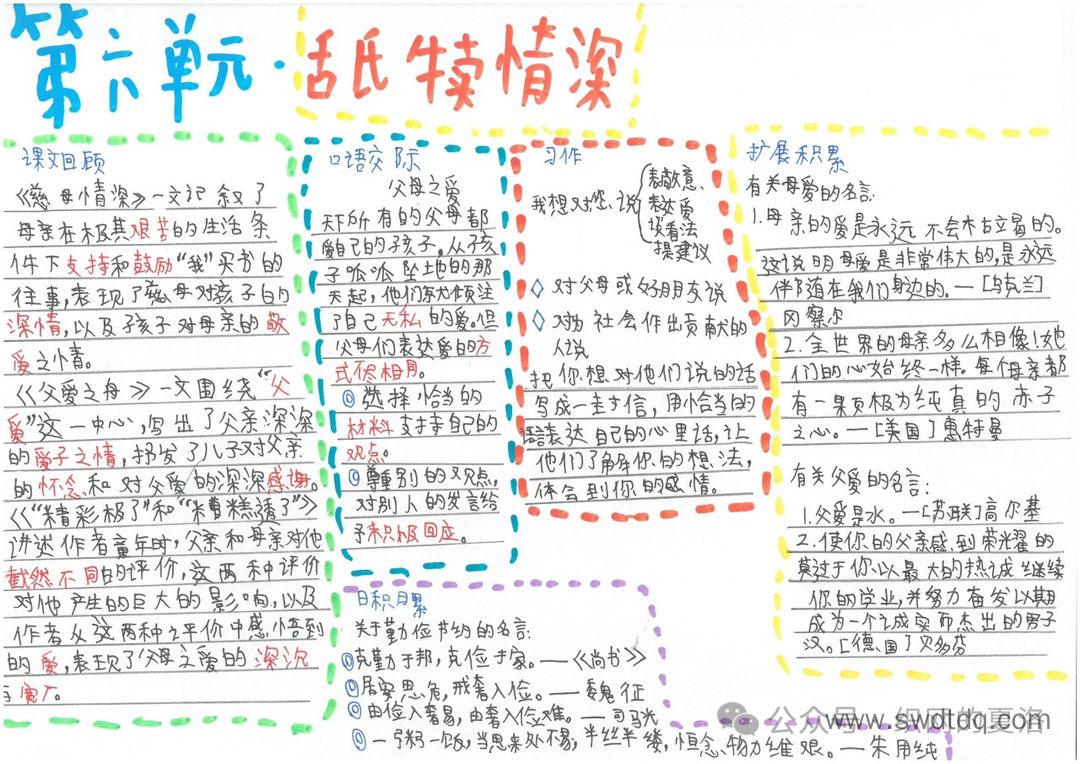 第六单元·舐牍情深
课文回顾
《慈母情深》一文记叙了
母亲在极其艰苦的生活条
件下支持和鼓励“我”买书的
往事，表现了慈母对孩子的
深情，以及孩子对母亲的敬
爱之情。
《父爱之舟》一文围绕“父
爱”这一中心，写出了父亲深深
的爱子之情，抒发了儿子对父亲
的怀念，和对父爱的深深感谢。
《“精彩极了”和“糟糕透了”》
讲述作者童年时，父亲和母亲对他
截然不同的评价，这两种评价
对他产生的巨大的影响，以及
作者从这两种评价中感悟到
的爱，表现了父母之爱的深沉
与宽广。
口语交际
父母之爱
天下所有的父母都
爱自己的孩子。从孩
子呱呱坠地的那
天起，他们就倾注
了自己无私的爱。但
父母们表达爱的方
式不尽相同。
◎选择恰当的
材料支持自己的
观点。
◎尊重别的观点，
对别人的发言给
予积极回应。
习作
我想对您说
表敬意、
表达爱
谈看法
提建议
◇对父母或好朋友说
◇对为社会作出贡献的
人说
把你想对他们说的话
写成一封信，用恰当的
语言表达自己的心里话，让
他们了解你的想法，
体会到你的感情。
扩展积累
有关母爱的名言：
1.母亲的爱是永远不会枯竭的。
这说明母爱是非常伟大的，是永远
伴随在我们身边的。—［乌克兰］
冈察尔
2.全世界的母亲多么相像！她
们的心始终一样。每母亲都
有一颗极为纯真的赤子
之心。—［美国］惠特曼
有关父爱的名言：
1.父爱是水。—［苏联］高尔基
2.使你的父亲感到荣光耀的
莫过于你以最大的热诚继续
你的学业，并努力奋发以期
成为一个诚实而杰出的男子
汉。［德国］贝多芬
日积月累
关于勤俭节约的名言：
◎克勤于邦，克俭于家。—《尚书》
◎居安思危，戒奢入俭。—魏征
◎由俭入奢易，由奢入俭难。—司马光
◎一粥一饭，当思来处不易，半丝半缕，恒念物力维艰。—朱用纯
公众号·
的夏洛
www.swdtdq.com